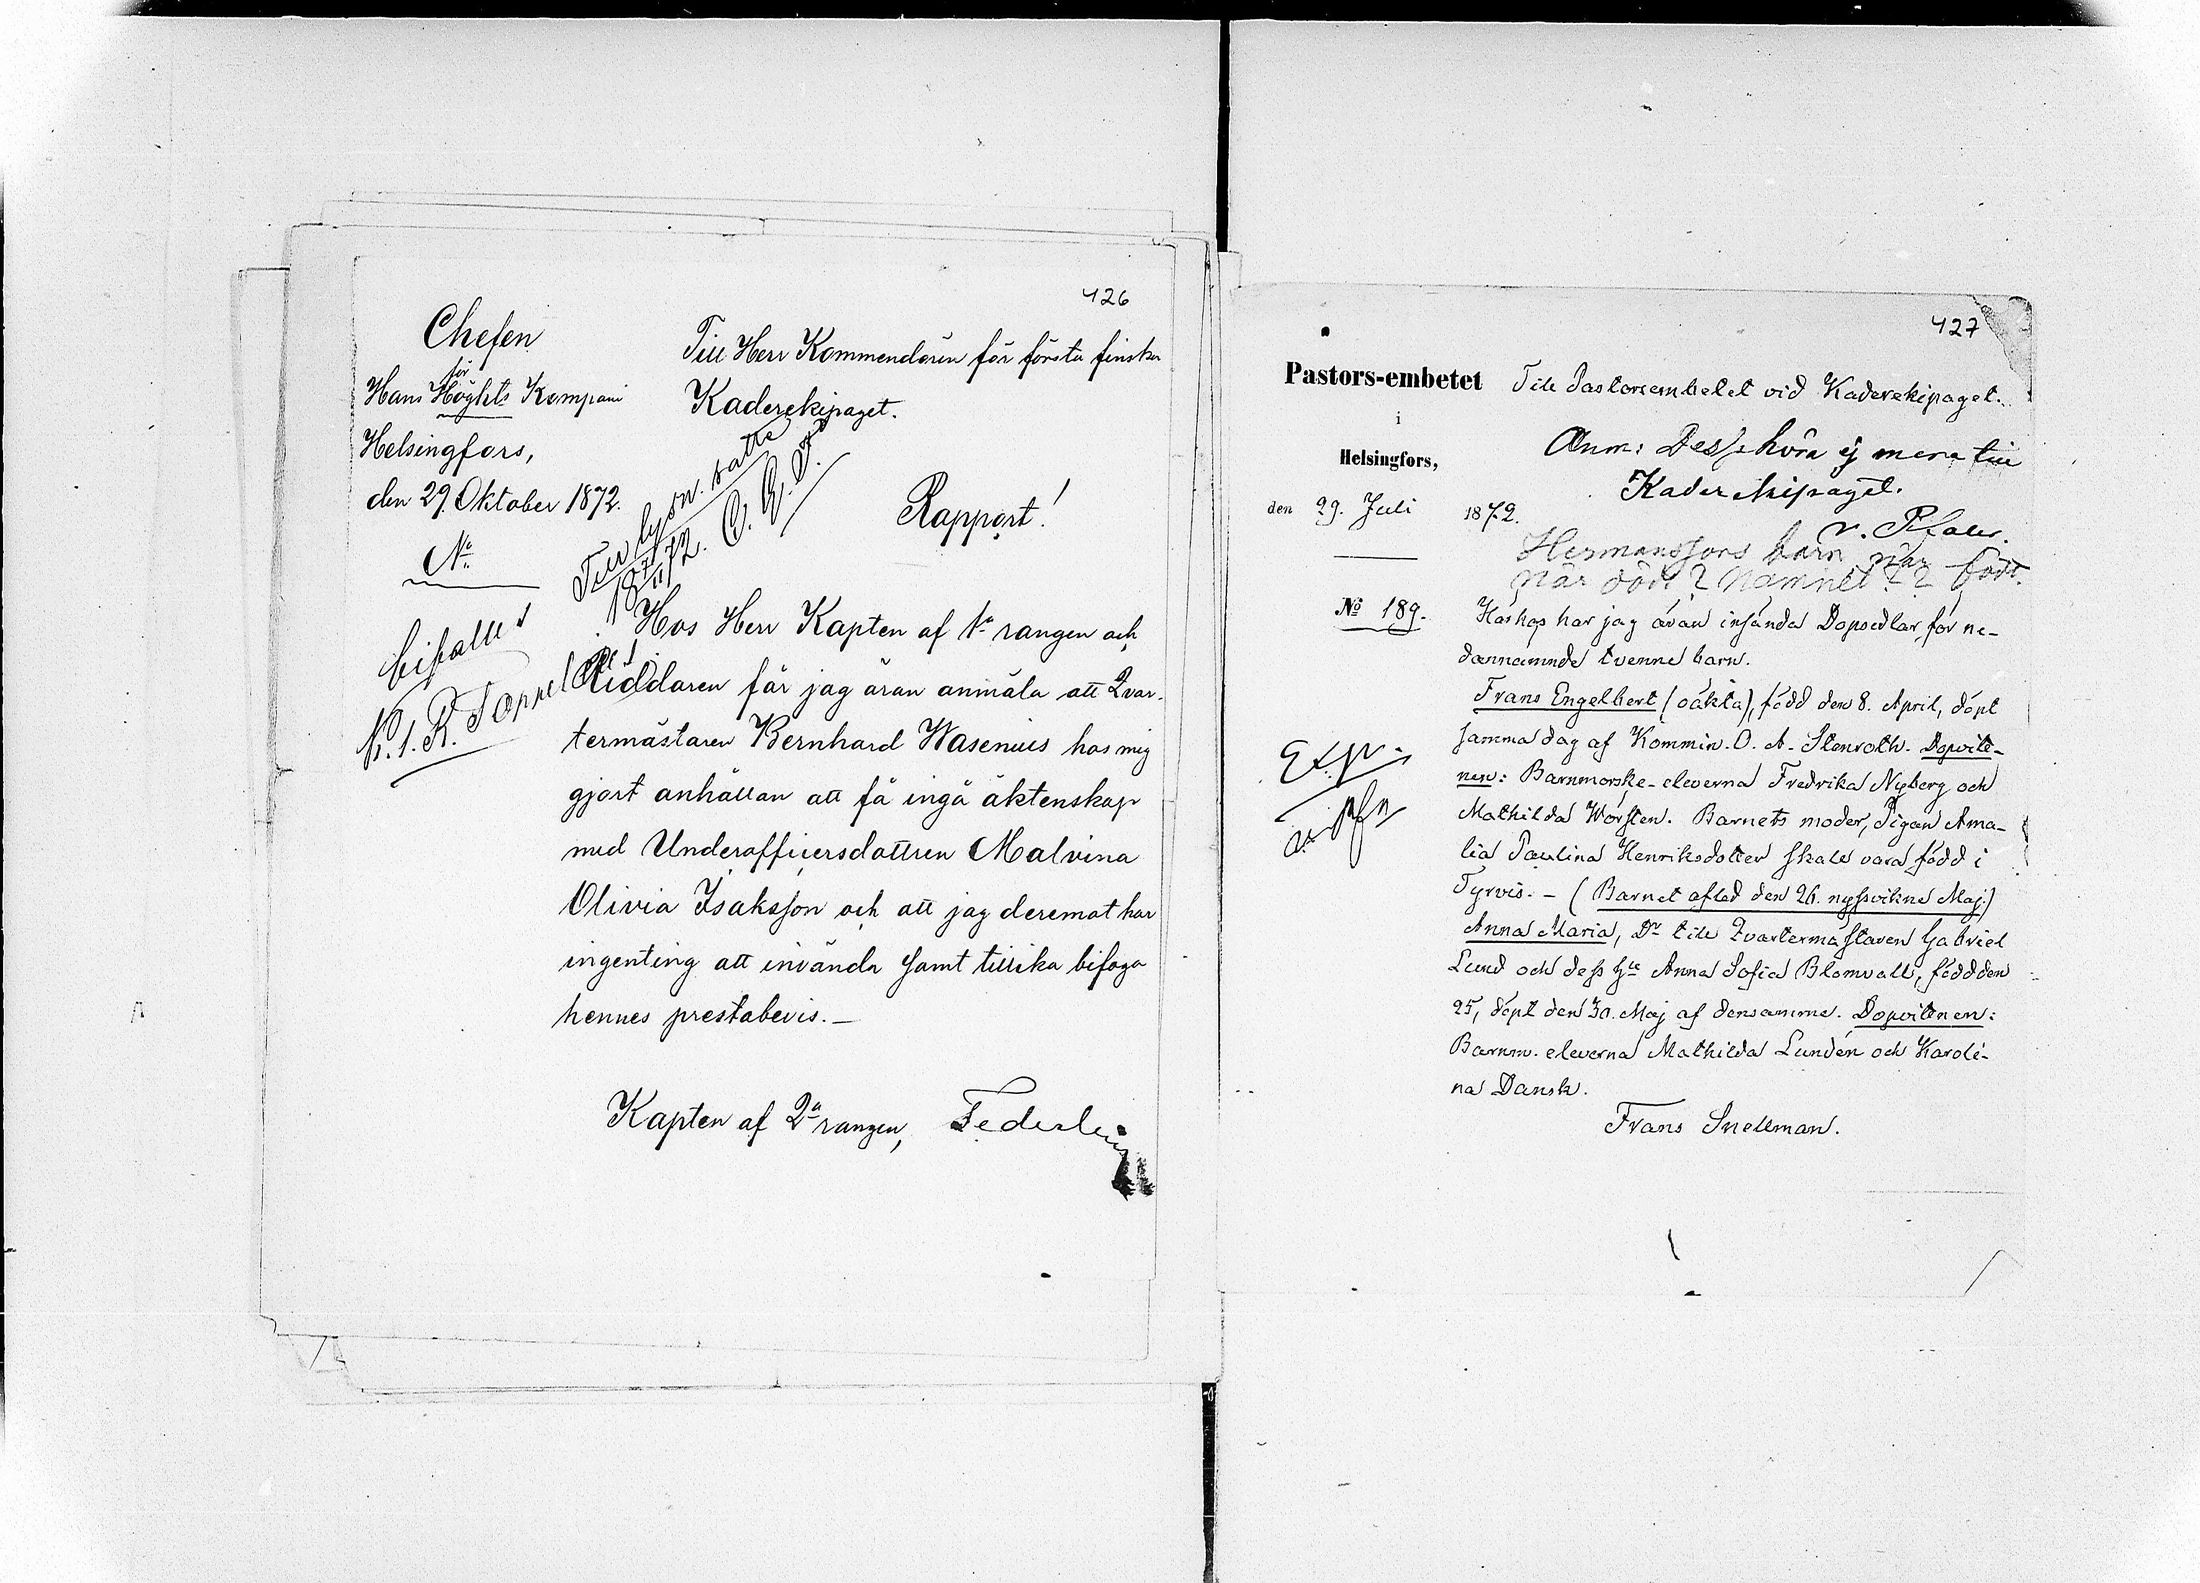 426
Chefen
för
Hans Höghts Kompani
Helsingfors,
den 29. Oktober 1872.
No
bifalles
Till Herr Kommendören för första finska
Kaderekipaget.
Till lysn. satta
Rapport!
Hos Herr Kapten af 1a rangen och
Riddaren får jag äran anmäla att Qvar-
termästaren Bernhard Wasenius hos mig
gjort anhållan att få ingå äktenskap
med Underofficersdottren Malvina
Olivia Isaksson och att jag deremot har
ingenting att invända samt tillika bifoga
hennes prestabevis. —
Kapten af 2a rangen,
427
Pastors-embetet
i
Helsingfors,
den 29. Juli 1872.
No 189.
Till Pastorsembetet vid Kaderekipaget.
Anm: Desse höra ej mera till
Kaderekipaget.
Hermanssons barn när född.
när död? namnet??
Härhos har jag äran insända Dopsedlar för ne-
dannämnde tvenne barn.
Frans Engelbert (oäkta), född den 8. April, döpt
samma dag af Kommin. O. A. Stenroth. Dopvitt-
nen: Barnmorske-eleverna Fredrika Nyberg och
Mathilda Worsten. Barnets moder, Pigan Ama-
lia Paulina Henriksdotter skall vara född i
Tyrvis. – (Barnet afled den 26. nyssvikne Maj.)
Anna Maria, Dr till Qvartermästaren Gabriel
Lund och dess h:u Anna Sofia Blomvall, född den
25, döpt den 30. Maj af densamme. Dopvittnen:
Barnm. eleverna Mathilda Lundén och Karoli-
na Dansk.
Frans Snellman.